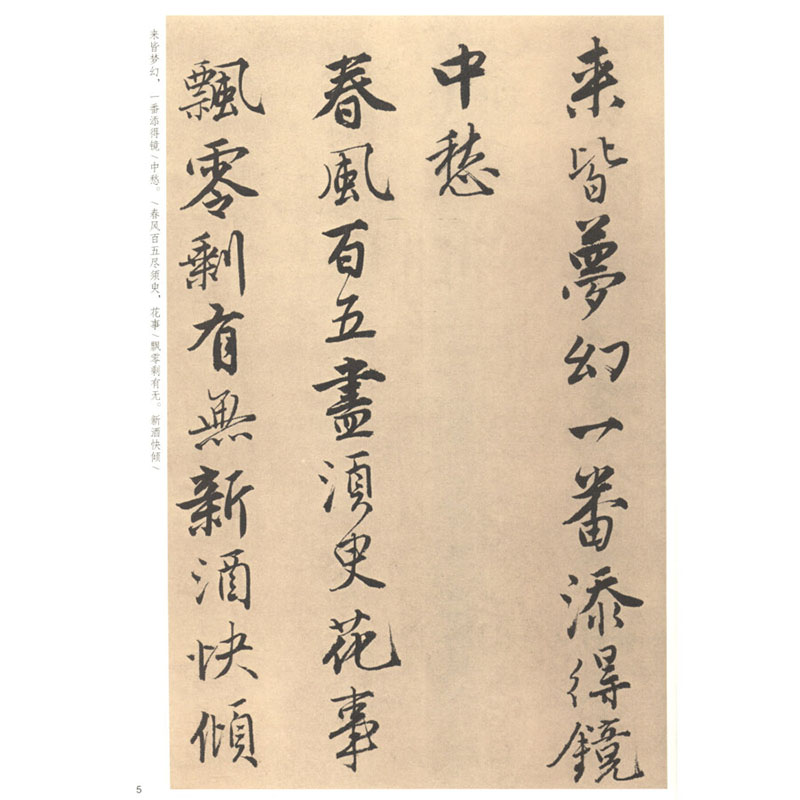 来皆夢幻一番添得鏡
中愁
春風百五盡須臾花事
飄零剩有無新酒快傾
来皆梦幻，一番添得镜/中愁。/春风百五尽须臾，花事/飘零剩有无。新酒快倾/
5